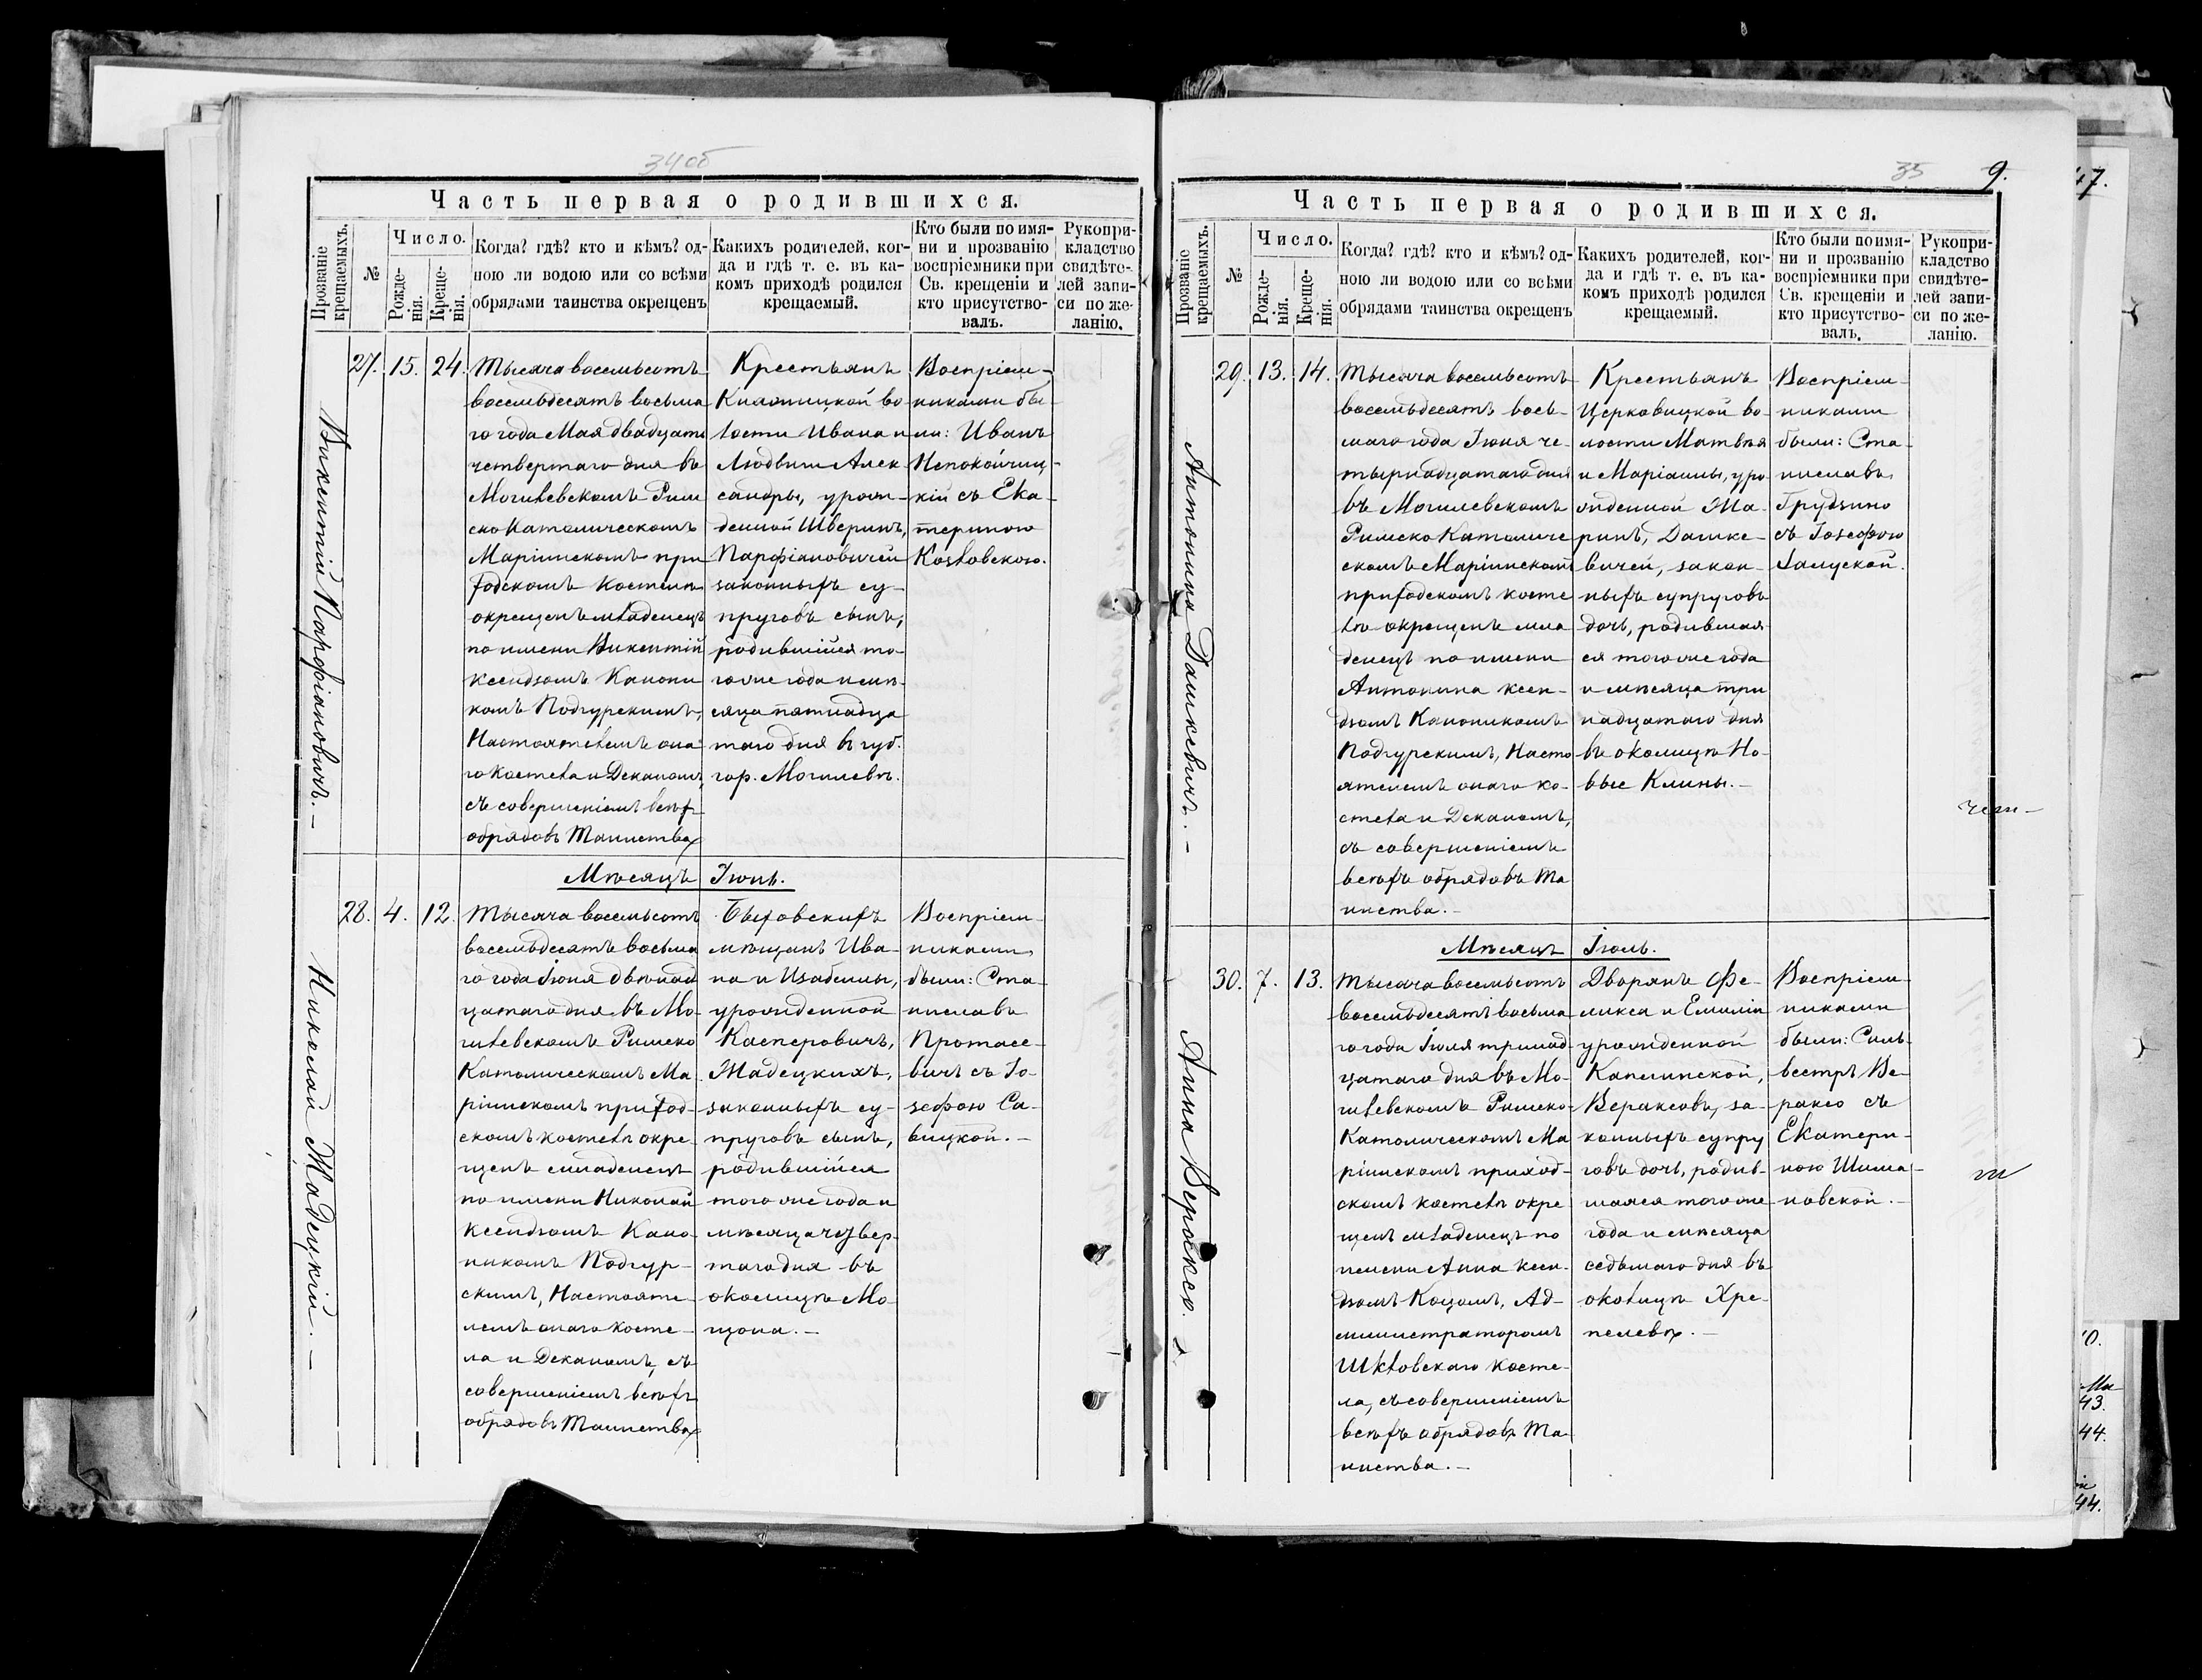 34об
Часть первая о родившихся.
Прозваніе крещаемыхъ.
№
Число.
Рожде-
нія.
Креще-
нія.
Когда? гдѣ? кто и кѣмъ? од-
ною ли водою или со всѣми
обрядами таинства окрещенъ
Какихъ родителей, ког-
да и гдѣ т. е. въ ка-
комъ приходѣ родился
крещаемый.
Кто были по имя-
ни и прозванію
воспріемники при
Св. крещеніи и
кто присутство-
валъ.
Рукопри-
кладство
свидѣте-
лей запи-
си по же-
ланію.
Викентій Парфіановичъ. —
27. 15. 24.
Тысяча восемьсотъ
восемьдесятъ восьма
го года Мая двадцать
четвертаго дня въ
Могилевскомъ Рим
ско Католическомъ
Маріинскомъ при
ходскомъ костелѣ
окрещенъ младенецъ
по имени Викентій
ксендзомъ Канони
комъ Подгурскимъ,
Настоятелемъ она
го Костела и Деканомъ,
съ совершеніемъ всѣхъ
обрядовъ Таинства
Крестьянъ
Княжицкой во-
лости Ивана и
Людвиги Алек
сандры, урож-
денной Шверинъ,
Парфіановичей
законныхъ су-
пруговъ сынъ,
родившійся то-
гоже года и мѣ-
сяца пятнадца
таго дня въ губ.
гор. Могилевѣ.
Воспріем-
никами бы-
ли: Иванъ
Непокойчиц-
кій съ Ека-
териною
Козловскою.
Мѣсяцъ Іюнь.
Николай Жадецкій. —
28. 4. 12.
Тысяча восемьсотъ
восемьдесятъ восьма
го года Іюня двѣнад
цатаго дня въ Мо-
гилевскомъ Римско
Католическомъ Ма
ріинскомъ приход-
скомъ костелѣ окре-
щенъ младенецъ
по имени Николай
Ксендзомъ Кано-
никомъ Подгур-
скимъ, Настояте-
лемъ онаго косте-
ла и Деканомъ, съ
совершеніемъ всѣхъ
обрядовъ Таинства
Быховскихъ
мѣщанъ Ива-
на и Изабеллы,
урожденной
Касперовичъ,
Жадецкихъ,
законныхъ су-
пруговъ сынъ,
родившійся
того же года и
мѣсяца четвер-
таго дня въ
околицѣ Мо-
щона. —
Воспріем-
никами
были: Ста-
ниславъ
Протасе-
вичъ съ Іо-
зефою Са-
вицкой. —
35 9.
Часть первая о родившихся.
Прозваніе крещаемыхъ.
№
Число.
Рожде-
нія.
Креще-
нія.
Когда? гдѣ? кто и кѣмъ? од-
ною ли водою или со всѣми
обрядами таинства окрещенъ
Какихъ родителей, ког-
да и гдѣ т. е. въ ка-
комъ приходѣ родился
крещаемый.
Кто были по имя-
ни и прозванію
воспріемники при
Св. крещеніи и
кто присутство-
валъ.
Рукопри-
кладство
свидѣте-
лей запи-
си по же-
ланію.
Антонина Дашкевичъ. —
29. 13. 14.
Тысяча восемьсотъ
восемьдесятъ вось-
маго года Іюня че-
тырнадцатаго дня
въ Могилевскомъ
Римско Католиче
скомъ Маріинскомъ
приходскомъ косте
лѣ окрещенъ мла
денецъ по имени
Антонина ксен-
дзомъ Каноникомъ
Подгурскимъ, Насто
ятелемъ онаго ко-
стела и Деканомъ,
съ совершеніемъ
всѣхъ обрядовъ Та
инства. —
Крестьянъ
Церковицкой во-
лости Матвѣя
и Маріанны, уро
жденной Жа-
ринъ, Дашке-
вичей, закон-
ныхъ супруговъ
дочь, родившая
ся того же года
и мѣсяца три
надцатаго дня
въ околицѣ Но-
вые Клины. —
Воспріем-
никами
были: Ста-
ниславъ
Грудзино
съ Іозефою
Залуской.
Мѣсяцъ Іюль.
Анна Вераксо.
30. 7. 13.
Тысяча восемьсотъ
восемьдесятъ восьма
го года Іюля тринад
цатаго дня въ Мо-
гилевскомъ Римско-
Католическомъ Ма
ріинскомъ приход-
скомъ костелѣ окре
щенъ младенецъ по
имени Анна ксен-
дзомъ Коцомъ, Ад-
министраторомъ
Шкловскаго косте-
ла, съ совершеніемъ
всѣхъ обрядовъ Та-
инства. —
Дворянъ Фе-
ликса и Емиліи
урожденной
Каплинской,
Вераксовъ, за-
конныхъ супру
говъ дочь, родив-
шаяся того же
года и мѣсяца
седьмаго дня въ
околицѣ Хре-
пелевѣ. —
Воспріем-
никами
были: Силь-
вестръ Ве-
раксо съ
Екатери-
ною Шима-
новской. —
47.
43.
44.
44.